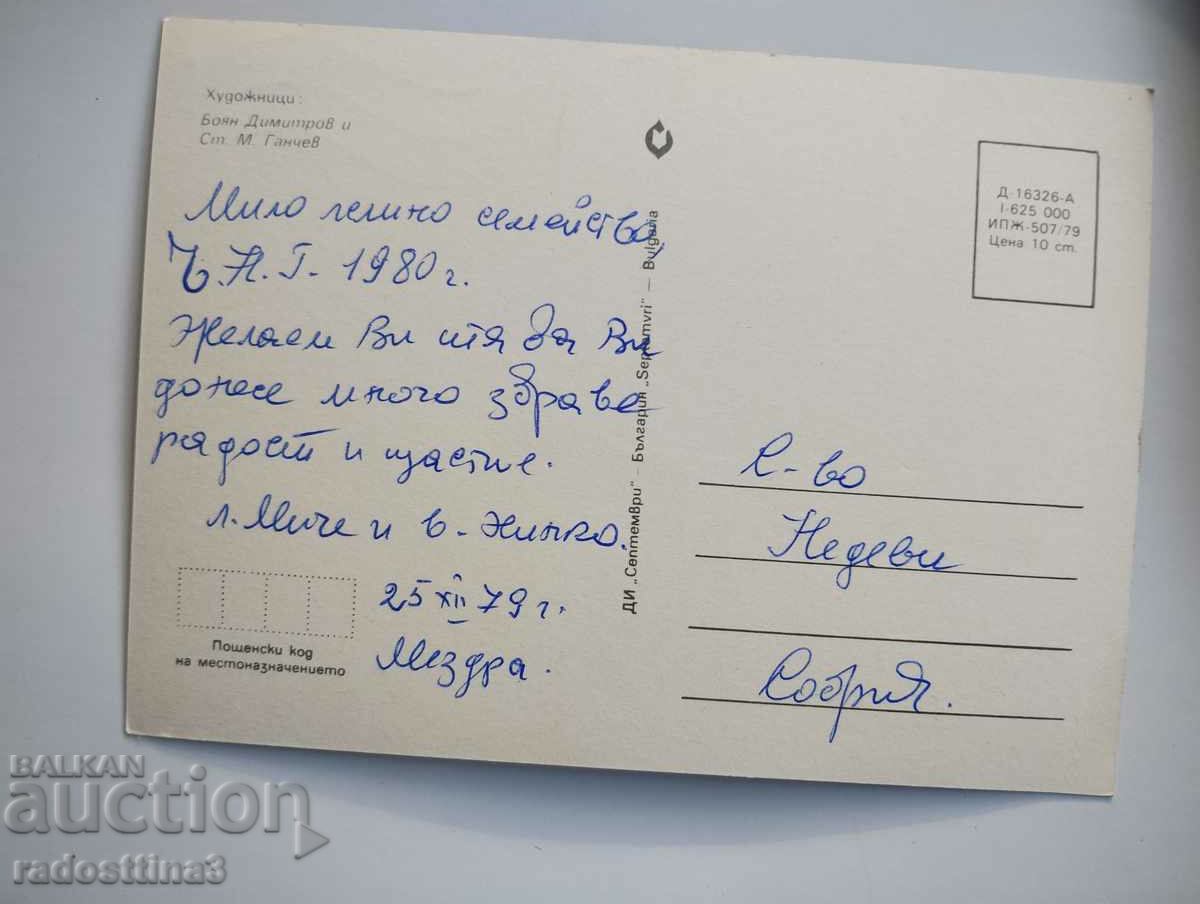 Художници:
Боян Димитров и
Ст. М. Ганчев
Мило семейство,
Ч.Н.Г. 1980 г.
Желаем Ви тя да Ви
донесе много здраве
радост и щастие.
л. Миче и в.
25 XII 79 г.
Мездра.
Пощенски код
на местоназначението
ДИ „Септември" – България „Septemvri" – Bulgaria
Д-16326-А
I-625 000
ИПЖ-507/79
Цена 10 ст.
С-во
Недеви
София.
BALKAN
auction
radosttina3